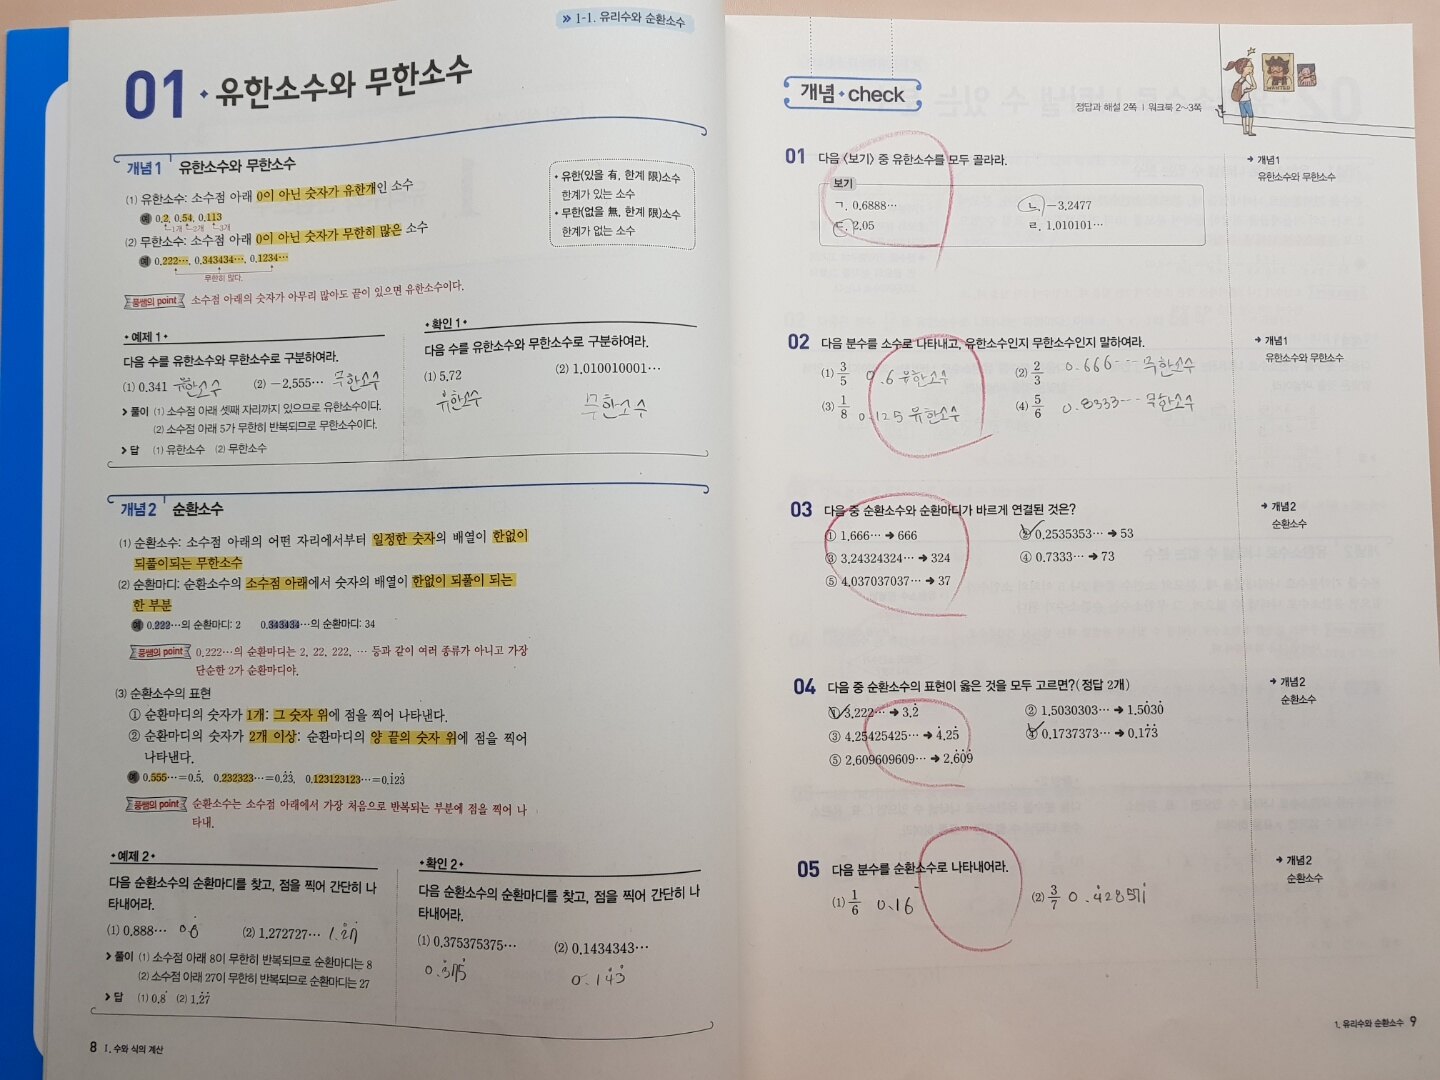 » 1-1. 유리수와 순환소수
01 · 유한소수와 무한소수
개념 1 유한소수와 무한소수
(1) 유한소수: 소수점 아래 0이 아닌 숫자가 유한개인 소수
예 0.2, 0.54, 0.113
1개 2개 3개
(2) 무한소수: 소수점 아래 0이 아닌 숫자가 무한히 많은 소수
예 0.222···, 0.343434···, 0.1234···
무한히 많다.
• 유한(있을 有, 한계 限)소수
한계가 있는 소수
• 무한(없을 無, 한계 限)소수
한계가 없는 소수
풍쌤의 point 소수점 아래의 숫자가 아무리 많아도 끝이 있으면 유한소수이다.
• 예제 1 •
다음 수를 유한소수와 무한소수로 구분하여라.
(1) 0.341 유한소수 (2) -2.555··· 무한소수
> 풀이 (1) 소수점 아래 셋째 자리까지 있으므로 유한소수이다.
(2) 소수점 아래 5가 무한히 반복되므로 무한소수이다.
> 답 (1) 유한소수 (2) 무한소수
• 확인 1 •
다음 수를 유한소수와 무한소수로 구분하여라.
(1) 5.72 (2) 1.010010001···
유한소수 무한소수
개념 2 순환소수
(1) 순환소수: 소수점 아래의 어떤 자리에서부터 일정한 숫자의 배열이 한없이
되풀이되는 무한소수
(2) 순환마디: 순환소수의 소수점 아래에서 숫자의 배열이 한없이 되풀이 되는
한 부분
예 0.222···의 순환마디: 2 0.343434···의 순환마디: 34
풍쌤의 point 0.222···의 순환마디는 2, 22, 222, ··· 등과 같이 여러 종류가 아니고 가장
단순한 2가 순환마디야.
(3) 순환소수의 표현
① 순환마디의 숫자가 1개: 그 숫자 위에 점을 찍어 나타낸다.
② 순환마디의 숫자가 2개 이상: 순환마디의 양 끝의 숫자 위에 점을 찍어
나타낸다.
예 0.555···=0.5̇, 0.232323···=0.2̇3̇, 0.123123123···=0.1̇23̇
풍쌤의 point 순환소수는 소수점 아래에서 가장 처음으로 반복되는 부분에 점을 찍어 나
타내.
• 예제 2 •
다음 순환소수의 순환마디를 찾고, 점을 찍어 간단히 나
타내어라.
(1) 0.888··· (2) 1.272727··· 1.2̇7̇
> 풀이 (1) 소수점 아래 8이 무한히 반복되므로 순환마디는 8
(2) 소수점 아래 27이 무한히 반복되므로 순환마디는 27
> 답 (1) 0.8̇ (2) 1.2̇7̇
• 확인 2 •
다음 순환소수의 순환마디를 찾고, 점을 찍어 간단히 나
타내어라.
(1) 0.375375375··· (2) 0.1434343···
0.3̇75̇ 0.14̇3̇
8 Ⅰ. 수와 식의 계산
개념 · check
정답과 해설 2쪽 | 워크북 2~3쪽
WANTED
01 다음 <보기> 중 유한소수를 모두 골라라.
보기
ㄱ. 0.6888··· ㄴ. -3.2477
ㄷ. 2.05 ㄹ. 1.010101···
→ 개념1
유한소수와 무한소수
02 다음 분수를 소수로 나타내고, 유한소수인지 무한소수인지 말하여라.
(1) 3/5 0.6 유한소수 (2) 2/3 0.666--- 무한소수
(3) 1/8 0.125 유한소수 (4) 5/6 0.8333--- 무한소수
→ 개념1
유한소수와 무한소수
03 다음 중 순환소수와 순환마디가 바르게 연결된 것은?
① 1.666··· ➔ 666 ② 0.2535353··· ➔ 53
③ 3.24324324··· ➔ 324 ④ 0.7333··· ➔ 73
⑤ 4.037037037··· ➔ 37
→ 개념2
순환소수
04 다음 중 순환소수의 표현이 옳은 것을 모두 고르면? (정답 2개)
① 3.222··· ➔ 3.2̇ ② 1.5030303··· ➔ 1.5̇03̇0̇
③ 4.25425425··· ➔ 4̇.25̇ ④ 0.1737373··· ➔ 0.17̇3̇
⑤ 2.609609609··· ➔ 2.6̇0̇9̇
→ 개념2
순환소수
05 다음 분수를 순환소수로 나타내어라.
(1) 1/6 0.16̇ (2) 3/7 0.4̇28571̇
→ 개념2
순환소수
1. 유리수와 순환소수 9